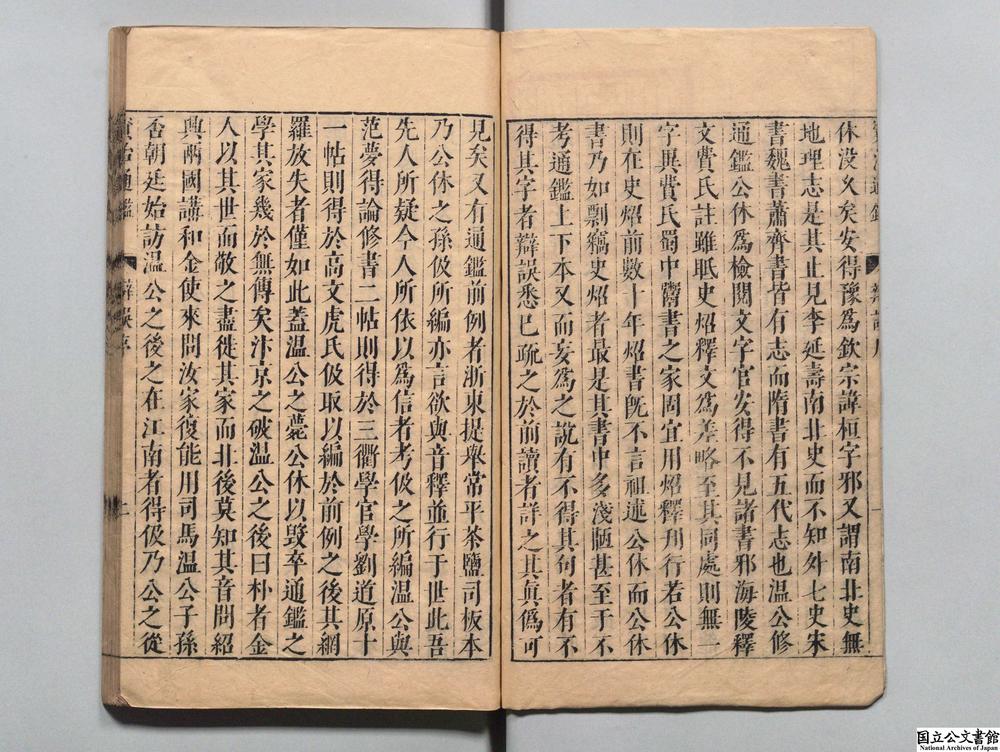 休没久矣安得豫爲欽宗諱桓字邪又謂南北史無
地理志是其止見李延壽南北史而不知外七史宋
書魏書蕭齊書皆有志而隋書有五代志也温公修
通鑑公休爲檢閱文字官安得不見諸書邪海陵釋
文費氏註雖視史炤釋文爲差略至其同處則無一
字異費氏蜀中鬻書之家固宜用炤釋刊行若公休
則在史炤前數十年炤書旣不言祖述公休而公休
書乃如剽竊史炤者最是其書中多淺陋甚至于不
考通鑑上下本文而妄爲之説有不得其句者有不
得其字者辯誤悉已疏之於前讀者詳之其眞僞可
見矣又有通鑑前例者浙東提舉常平茶鹽司板本
乃公休之孫伋所編亦言欲與音釋並行于世此吾
先人所疑今人所依以爲信者考伋之所編温公與
范夢得論修書二帖則得於三衢學官學劉道原十
一帖則得於高文虎氏伋取以編於前例之後其網
羅放失者僅如此蓋温公之薨公休以毁卒通鑑之
學其家幾於無傳矣汴京之破温公之後曰朴者金
人以其世而敬之盡徙其家而北後莫知其音問紹
興兩國講和金使來問汝家復能用司馬温公子孫
否朝廷始訪温公之後之在江南者得伋乃公之從
資治通鑑 辯誤序 二
国立公文書館
National Archives of Japan